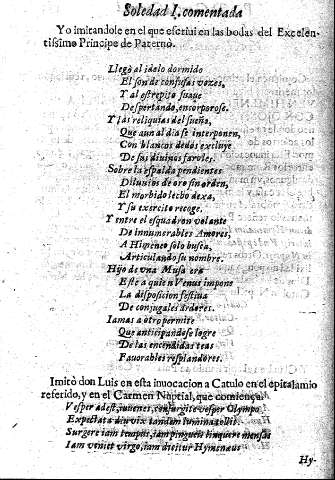 Soledad I. comentada
Yo imitandole en el que escriui en las bodas del Excelen-
tissimo Principe de Paternò.
Llegò al idolo dormido
El son de confusas vozes,
Y al estrepito suaue
Despertando, encorporose.
Y las reliquias del sueño,
Que aun al dia se interponen,
Con blancos dedos excluye
De sus diuinos faroles.
Sobre la espalda pendientes
Diluuios de oro sin orden,
El morbido lecho dexa,
Y su exercito recoge.
Y entre el esquadron volante
De innumerables Amores,
A Himeneo solo busca,
Articulando su nombre.
Hijo de vna Musa era
Este a quien Venus impone
La disposicion festiua
De conjugales ardores.
Iamas a otro permite
Que anticipandose logre
De las encendidas teas
Fauorables resplandores.
Imitò don Luis en esta inuocacion a Catulo en el epitalamio
referido, y en el Carmen Nuptial, que comiença:
Vesper adest, iuuenes, consurgite vesper Olympo
Expectata diu vix tandem lumina tollit.
Surgere iam tempus, iam pingueis linquere mensas
Iam veniet virgo, iam dicetur Hymenæus
Hy-